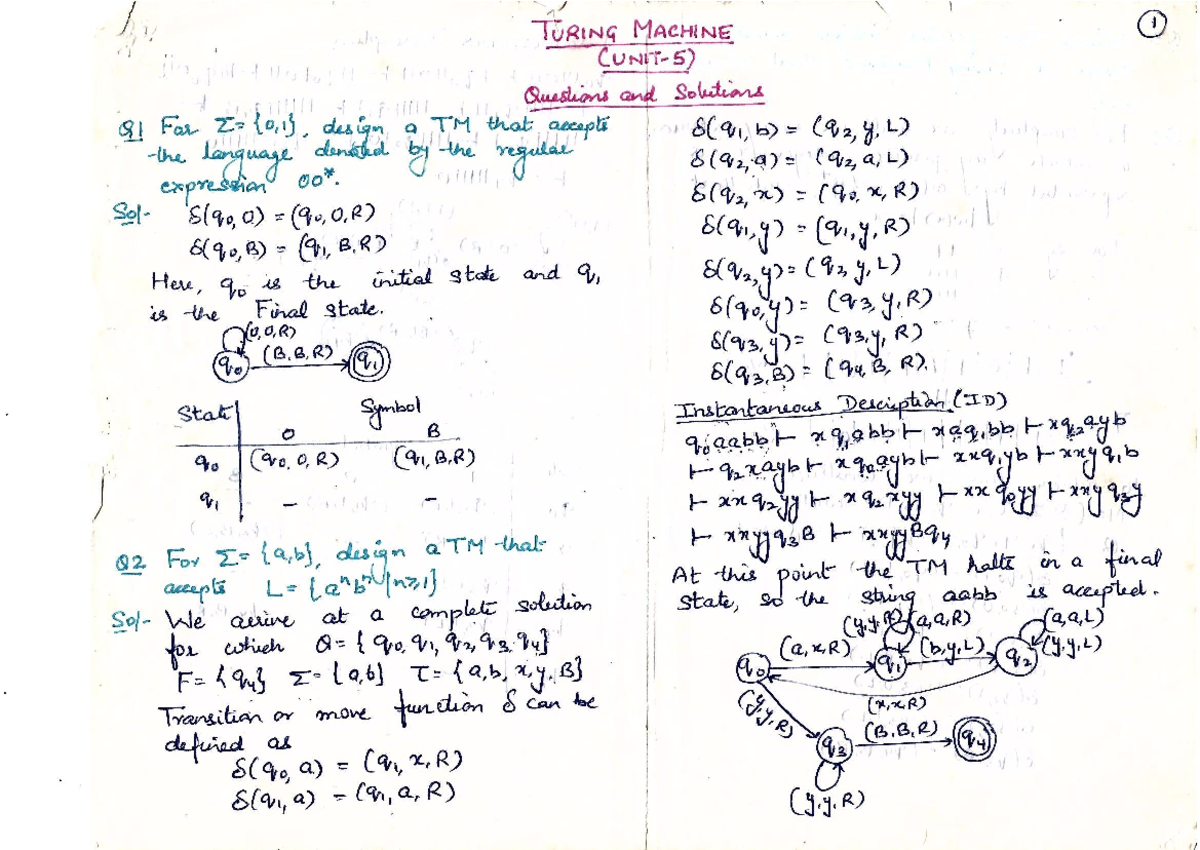 1
TURING MACHINE
(UNIT-5)
Questions and Solutions
Q1 For Σ={0,1}, design a TM that accepts
the language denoted by the regular
expression 00*.
Sol- δ(q₀,0) = (q₀,0,R)
δ(q₀,B) = (q₁,B,R)
Here, q₀ is the initial state and q₁
is the Final state.
(0,0,R)
q₀ (B,B,R) q₁
State Symbol
0 B
q₀ (q₀,0,R) (q₁,B,R)
q₁ - -
Q2 For Σ={a,b}, design a TM that
accepts L={aⁿbⁿ|n≥1}
Sol- We arrive at a complete solution
for which Q={q₀,q₁,q₂,q₃,q₄}
F={q₄} Σ={a,b} τ={a,b,x,y,B}
Transition or move function δ can be
defined as
δ(q₀,a) = (q₁,x,R)
δ(q₁,a) = (q₁,a,R)
δ(q₁,b) = (q₂,y,L)
δ(q₂,a) = (q₂,a,L)
δ(q₂,x) = (q₀,x,R)
δ(q₁,y) = (q₁,y,R)
δ(q₂,y) = (q₂,y,L)
δ(q₀,y) = (q₃,y,R)
δ(q₃,y) = (q₃,y,R)
δ(q₃,B) = (q₄,B,R).
Instantaneous Description (ID)
q₀aabb ⊢ xq₁abb ⊢ xaq₁bb ⊢ xq₂ayb
⊢ q₂xayb ⊢ xq₀ayb ⊢ xxq₁yb ⊢ xxyq₁b
⊢ xxq₂yy ⊢ xq₂xyy ⊢ xxq₀yy ⊢ xxyq₃y
⊢ xxyyq₃B ⊢ xxyyBq₄
At this point the TM halts in a final
state, so the string aabb is accepted.
(y,y,R) (a,a,R) (a,a,L)
q₀ (a,x,R) q₁ (b,y,L) q₂ (y,y,L)
(x,x,R)
(y,y,R) q₃ (B,B,R) q₄
(y,y,R)